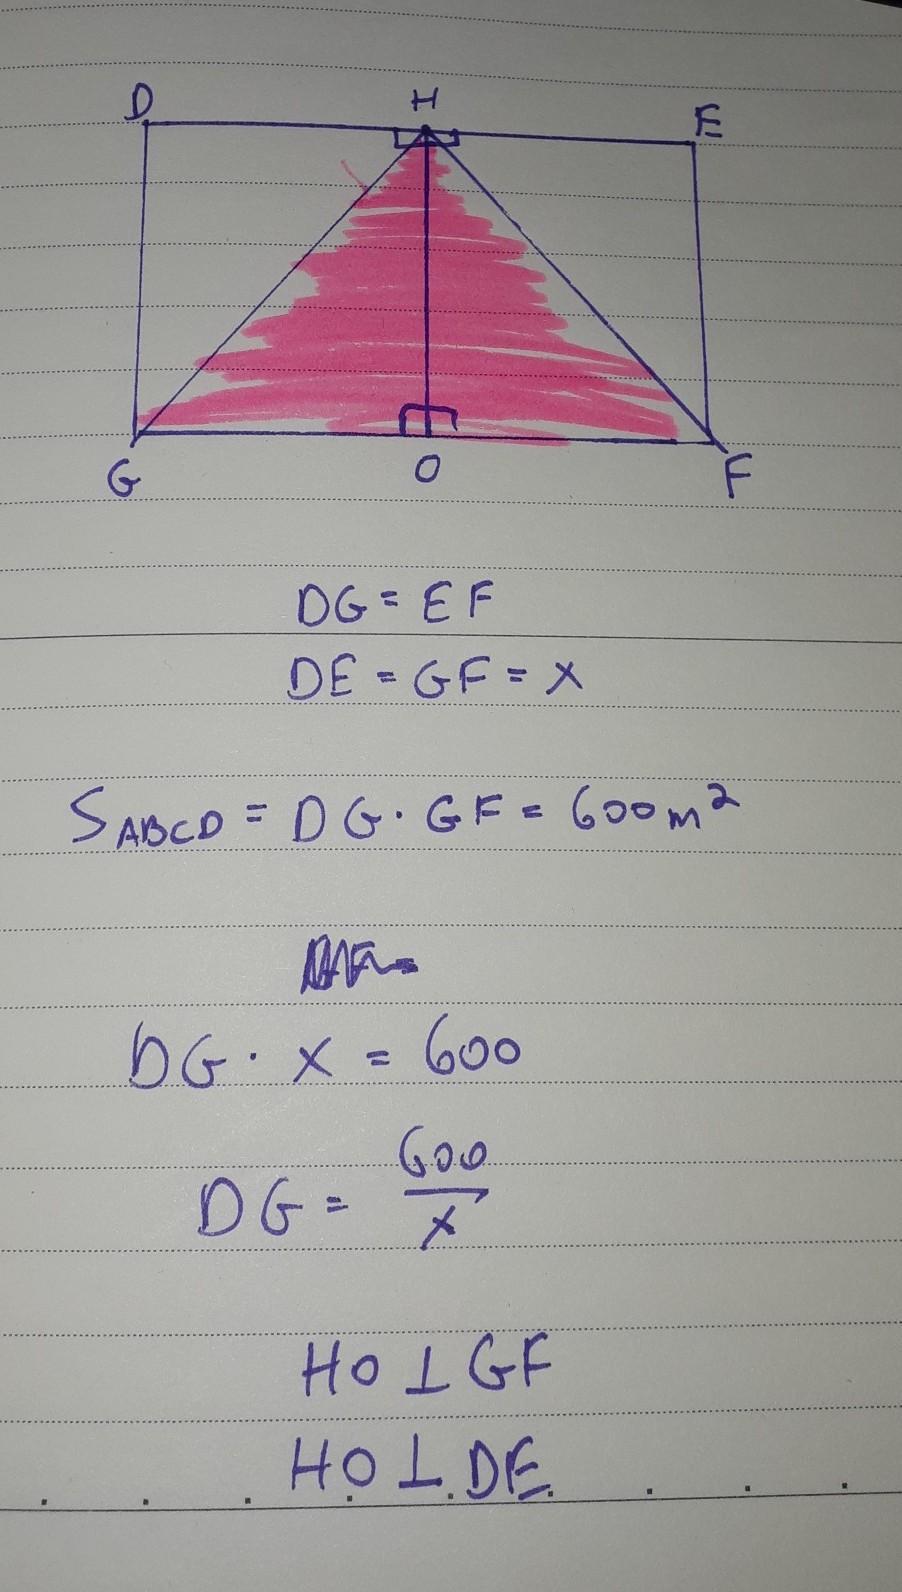 D H E
G O F
DG = EF
DE = GF = x
S ABCD = DG · GF = 600 m²
DG · x = 600
DG = 600/x
HO ⊥ GF
HO ⊥ DE